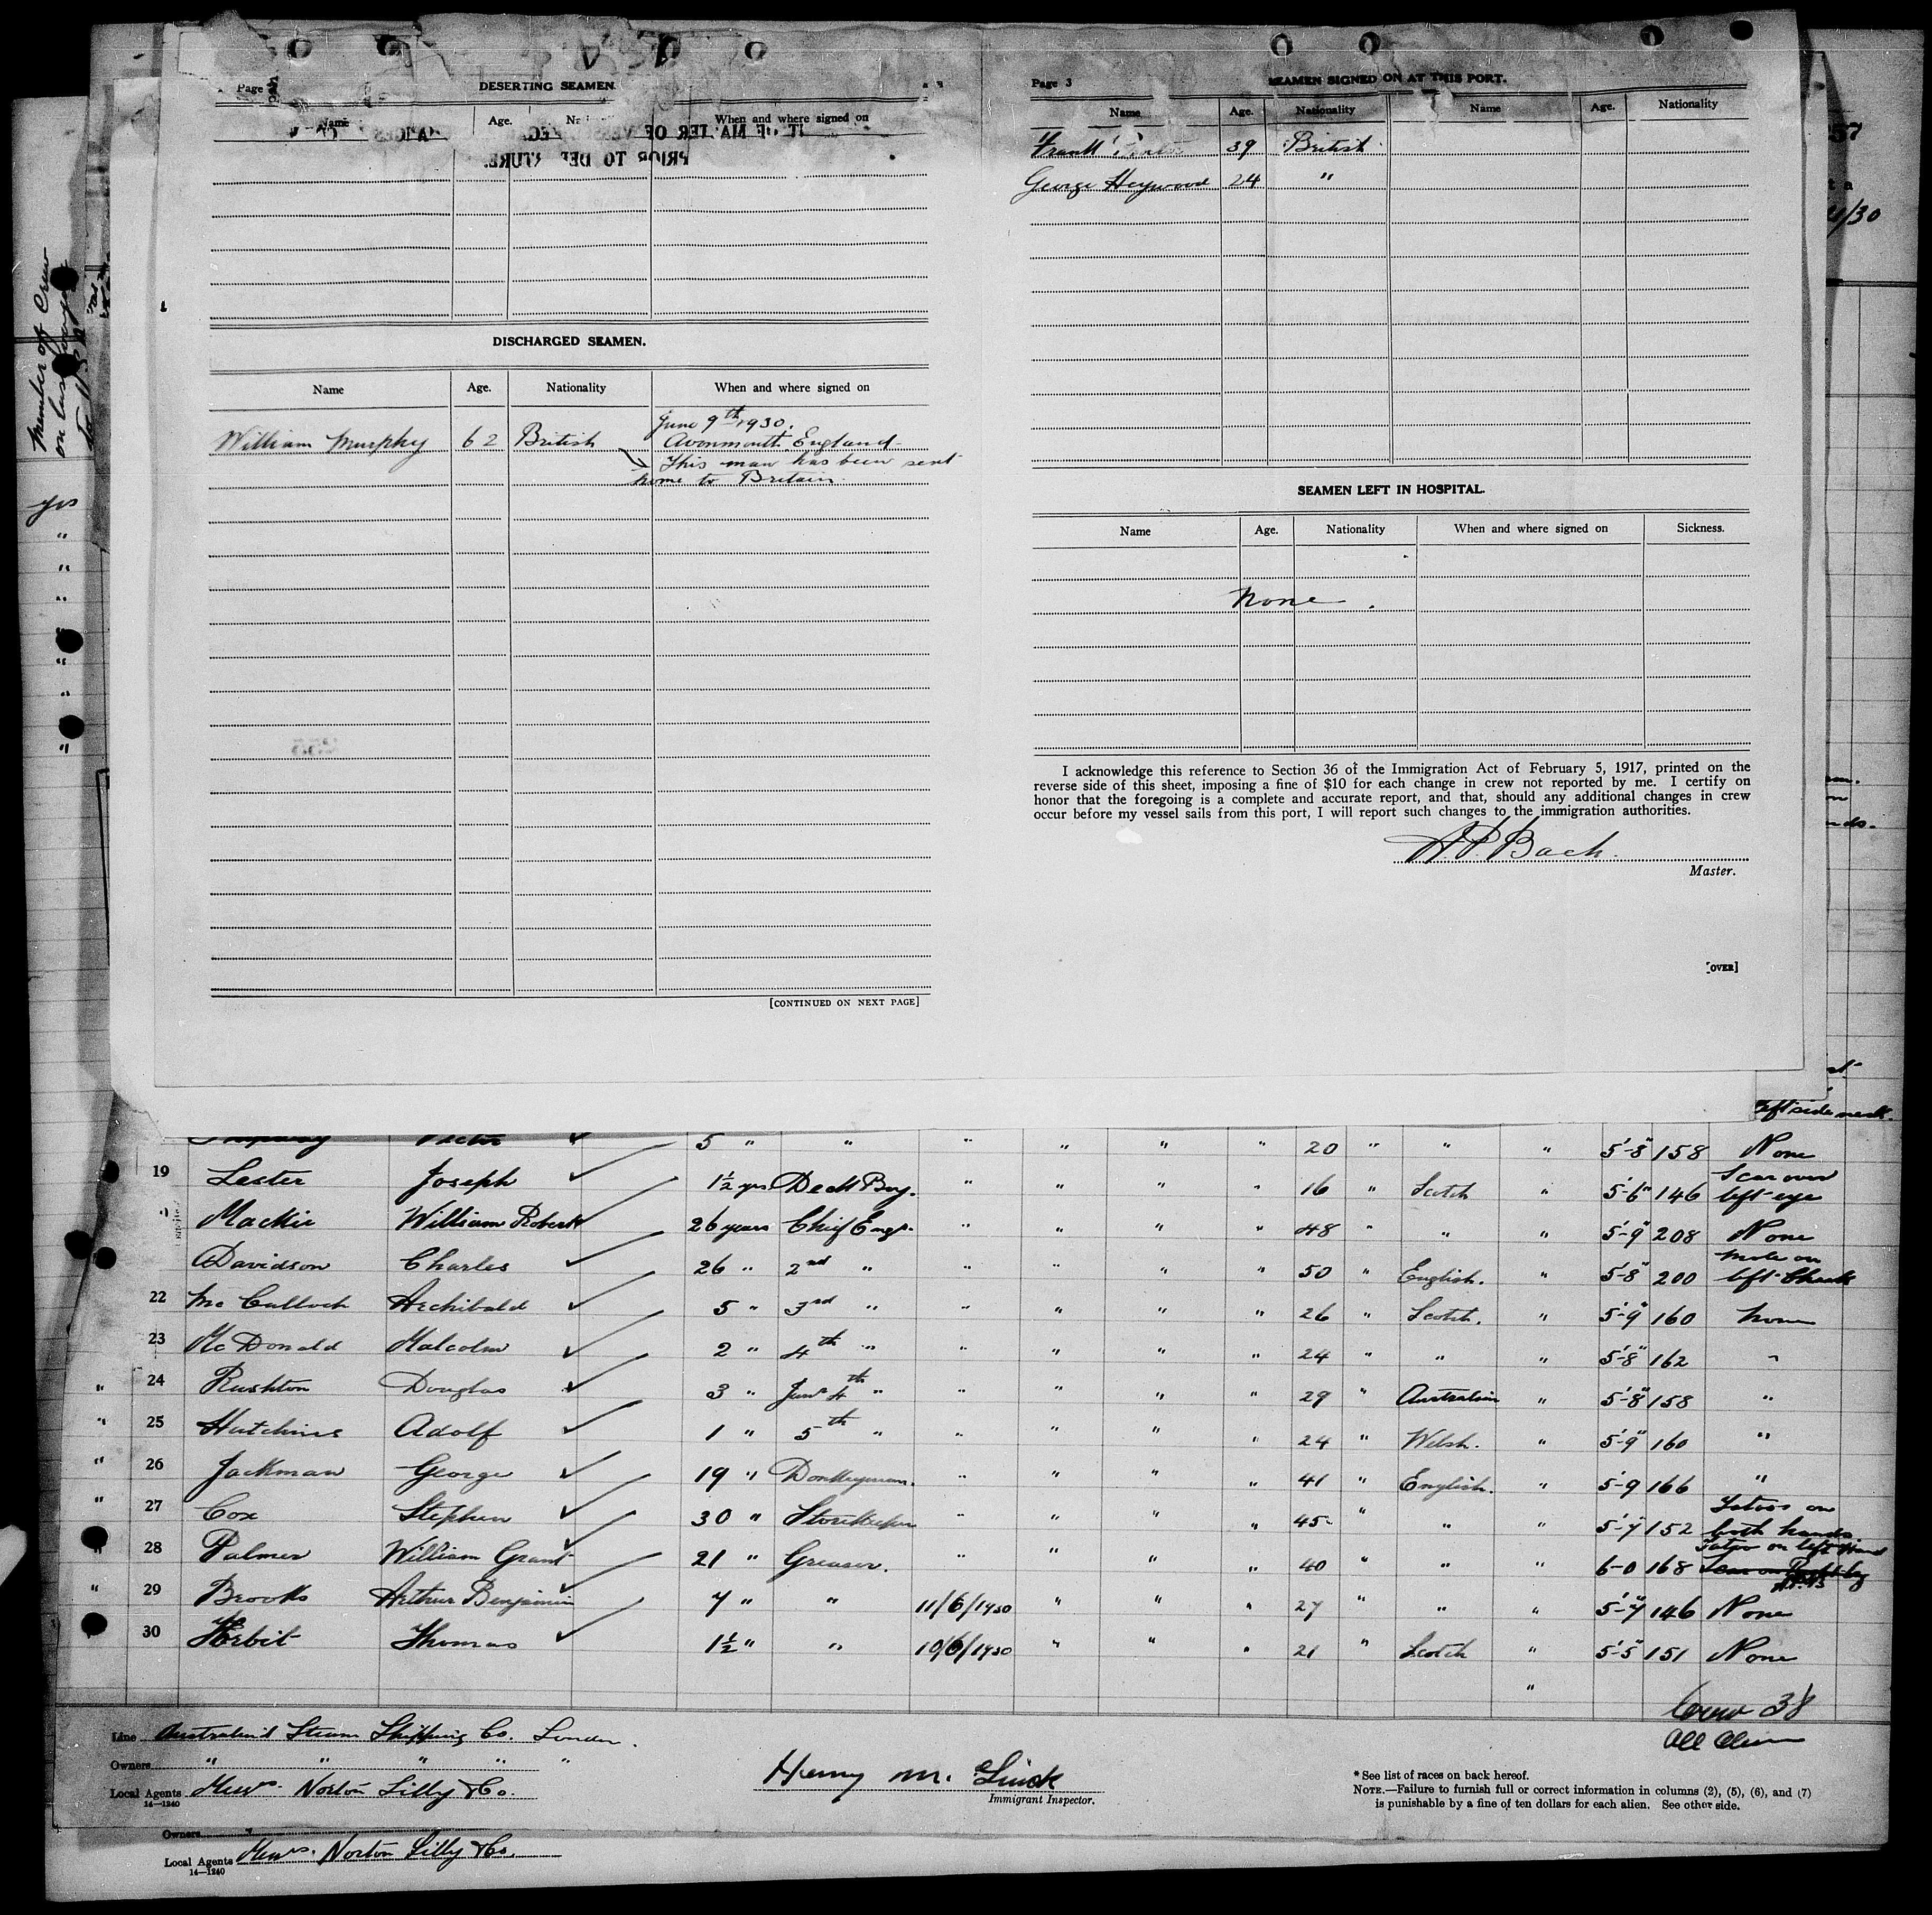 Page
DESERTING SEAMEN.
Name Age. When and where signed on
PRIOR TO
DISCHARGED SEAMEN.
Name Age. Nationality When and where signed on
William Murphy 62 British June 9th 1930.
Avonmouth. England
This man has been sent
home to Britain.
[CONTINUED ON NEXT PAGE]
Page 3 SEAMEN SIGNED ON AT THIS PORT.
Name Age. Nationality Name Age. Nationality
Frank 39 British
George Heywood 24 "
SEAMEN LEFT IN HOSPITAL.
Name Age. Nationality When and where signed on Sickness.
None.
I acknowledge this reference to Section 36 of the Immigration Act of February 5, 1917, printed on the
reverse side of this sheet, imposing a fine of $10 for each change in crew not reported by me. I certify on
honor that the foregoing is a complete and accurate report, and that, should any additional changes in crew
occur before my vessel sails from this port, I will report such changes to the immigration authorities.
A.P. Bach.
Master.
[OVER]
57
4/30
Member of Crew
on last voyage
to U.S.
yes
left side neck.
Victor 5 " " " " " " 20 " " " 5'-8" 158 None
19 Lester Joseph 1½ yrs Deck Boy. " " " " 16 " Scotch " 5'-6" 146 Scar over left eye
Mackie William Robert 26 years Chief Engr. " " " " 48 " " " 5'-9" 208 None
Davidson Charles 26 " 2nd " " " " " 50 " English. " 5'-8" 200 Mole on left Cheek
22 McCulloch Archibald 5 " 3rd " " " " " 26 " Scotch. " 5'-9" 160 None
23 McDonald Malcolm 2 " 4th " " " " " 24 " " " 5'-8" 162 "
" 24 Rushton Douglas 3 " Junr 4th " " " " " 29 " Australian " 5'-8" 158 "
" 25 Hutchins Adolf 1 " 5th " " " " " 24 " Welsh. " 5'-9" 160 "
" 26 Jackman George 19 " Donkeyman. " " " " 41 " English. " 5'-9 166 "
" 27 Cox Stephen 30 " Storekeeper " " " " 45 " " " 5'-7 152 Tatoos on both hands
" 28 Palmer William Grant 21 " Greaser. " " " " 40 " " " 6-0 168 Tatoo on left Hand
" 29 Brooks Arthur Benjamin 7 " " 11/6/1930 " " " 27 " " " 5'-7" 146 None
30 Herbit Thomas 1½ " " 10/6/1930 " " " 21 " Scotch " 5'-5" 151 None
"
Crew 38
All
Line Australind Steam Shipping Co. London.
Owners " " " " "
Local Agents Messrs. Norton Lilly & Co.
14—1240
Henry M.
Immigrant Inspector.
* See list of races on back hereof.
NOTE.—Failure to furnish full or correct information in columns (2), (5), (6), and (7)
is punishable by a fine of ten dollars for each alien. See other side.
Owners
Local Agents Messrs. Norton Lilly & Co.
14—1240